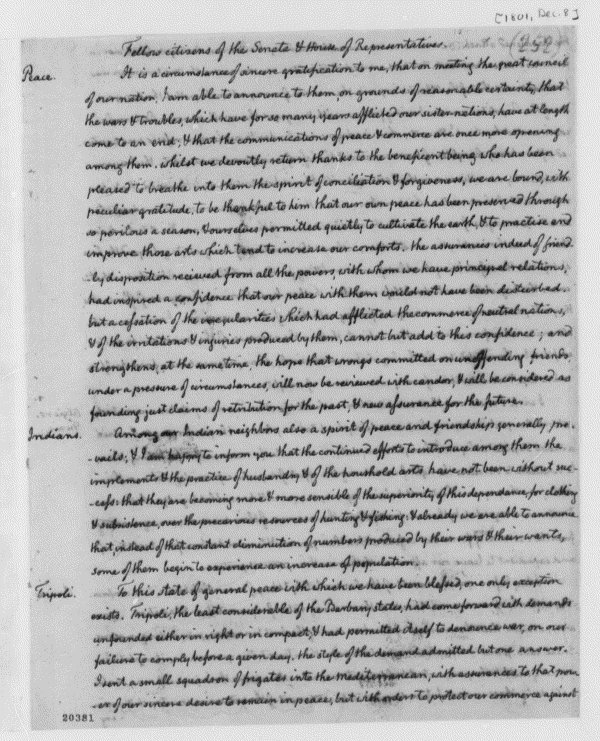 [1801, Dec. 8]
Fellow citizens of the Senate & House of Representatives.
Peace.
It is a circumstance of sincere gratification to me, that on meeting the great council
of our nation, I am able to announce to them on grounds of reasonable certainty, that
the wars & troubles, which have for so many years afflicted our sister-nations, have at length
come to an end; & that the communications of peace & commerce are once more opening
among them. whilst we devoutly return thanks to the beneficent being who has been
pleased to breathe into them the spirit of conciliation & forgiveness, we are bound, with
peculiar gratitude, to be thankful to him that our own peace has been preserved through
so perilous a season, & ourselves permitted quietly to cultivate the earth, & to practise and
improve those arts which tend to increase our comforts. the assurances indeed of friend
-ly disposition recieved from all the powers, with whom we have principal relations,
had inspired a confidence that our peace with them would not have been disturbed.
but a cessation of the irregularities which had afflicted the commerce of neutral nations,
& of the irritations & injuries produced by them, cannot but add to this confidence; and
strengthens, at the same time, the hope that wrongs committed on unoffending friends,
under a pressure of circumstances, will now be reviewed with candor, & will be considered as
founding just claims of retribution for the past, & new assurance for the future.
Indians.
Among our Indian neighbors also a spirit of peace and friendship generally pre-
-vails; & I am happy to inform you that the continued efforts to introduce among them the
implements & the practice of husbandry & of the houshold arts have not been without suc-
-cess: that they are becoming more & more sensible of the superiority of this dependance, for clothing
& subsistence, over the precarious resources of hunting & fishing: & already we are able to announce
that instead of that constant diminution of numbers produced by their wars & their wants,
some of them begin to experience an increase of population.
Tripoli.
To this state of general peace with which we have been blessed, one only exception
exists. Tripoli, the least considerable of the Barbary states, had come forward with demands
unfounded either in right or in compact, & had permitted itself to denounce war, on our
failure to comply before a given day. the style of the demand admitted but one answer.
I sent a small squadron of frigates into the Mediterranean, with assurances to that pow-
-er of our sincere desire to remain in peace; but with orders to protect our commerce against
20381